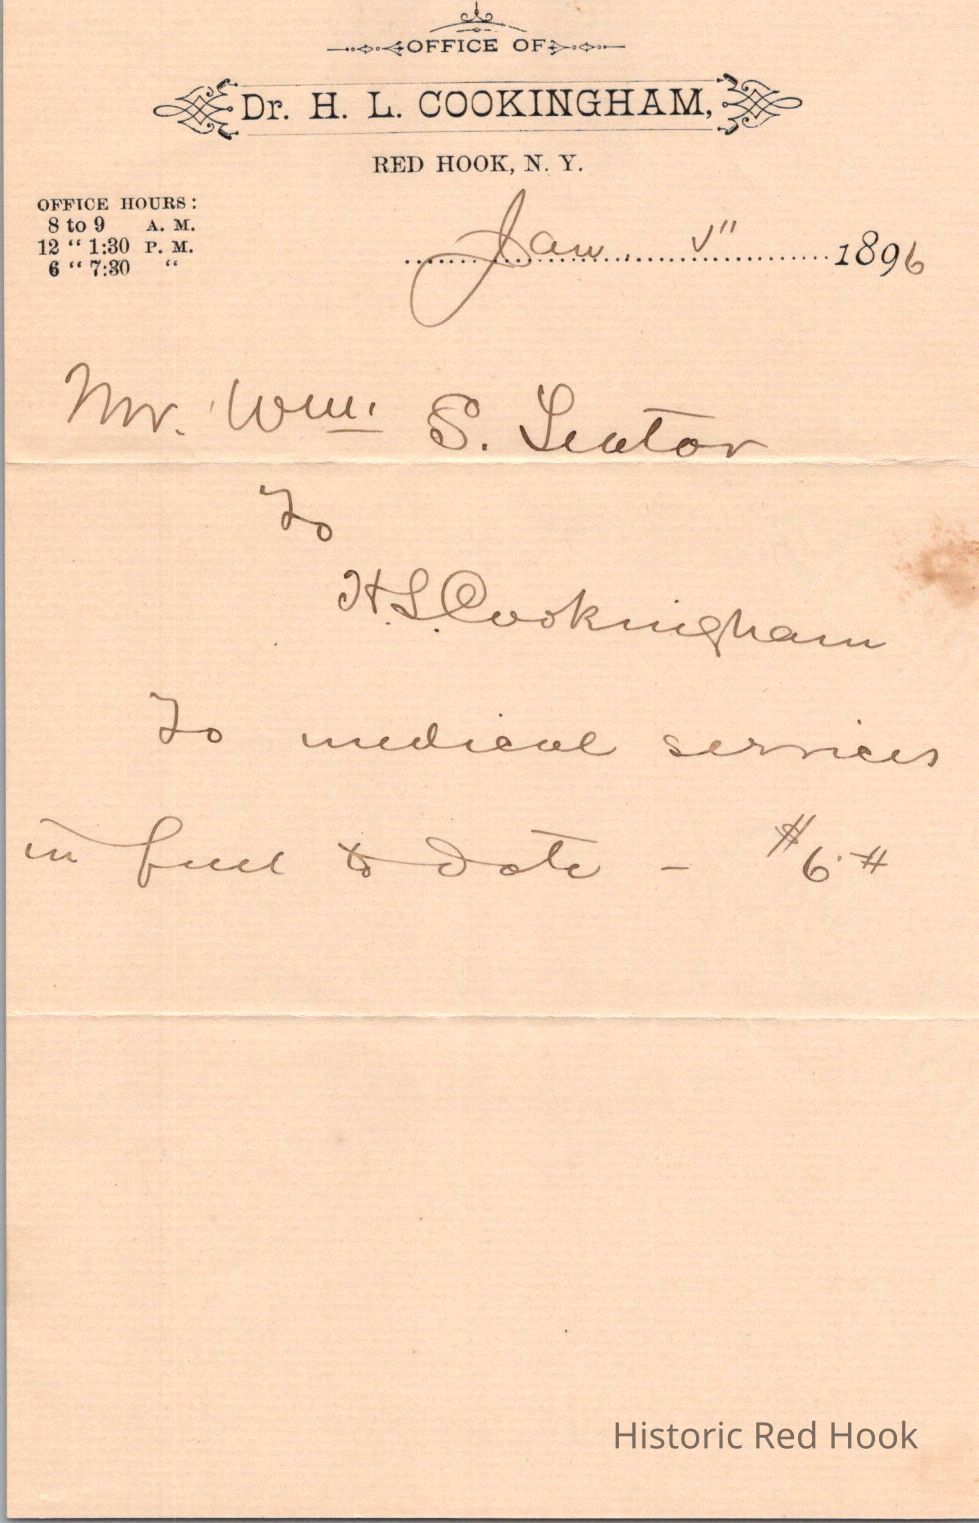 OFFICE OF
Dr. H. L. COOKINGHAM,
RED HOOK, N. Y.
OFFICE HOURS:
8 to 9 A. M.
12 “ 1:30 P. M.
6 “ 7:30 “
Jan. 1896
Mr. Wm. S.
To
H. L. Cookingham
To medical services
in full to date - $6
Historic Red Hook